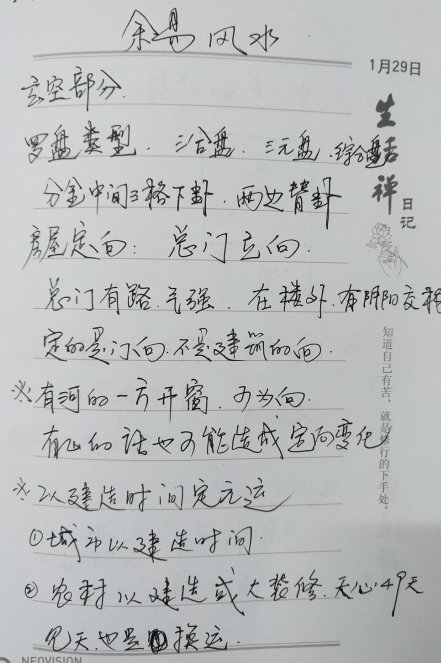 余易风水
1月29日
生活禅
日记
玄空部分.
罗盘类型. 三合盘. 三元盘. 综合盘
分金中间3格下卦. 两边替卦
房屋定向: 总门立向.
总门有路.气强. 在楼外.有阴阳交
定的是门向.不是建筑的向.
※有河的一方开窗.可为向.
有山的话也可能造成定向变化
※以建造时间定元运
①城市以建造时间.
②农村以建造或大装修.天心.49天
见天.也是换运.
知道自己有苦,就是修行的下手处。
NEOVISION